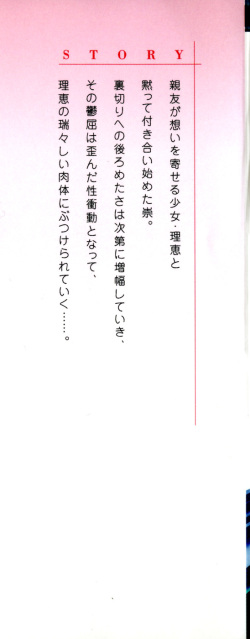 STORY
親友が想いを寄せる少女・理恵と
黙って付き合い始めた崇。
裏切りへの後ろめたさは次第に増幅していき、
その鬱屈は歪んだ性衝動となって、
理恵の瑞々しい肉体にぶつけられていく……。